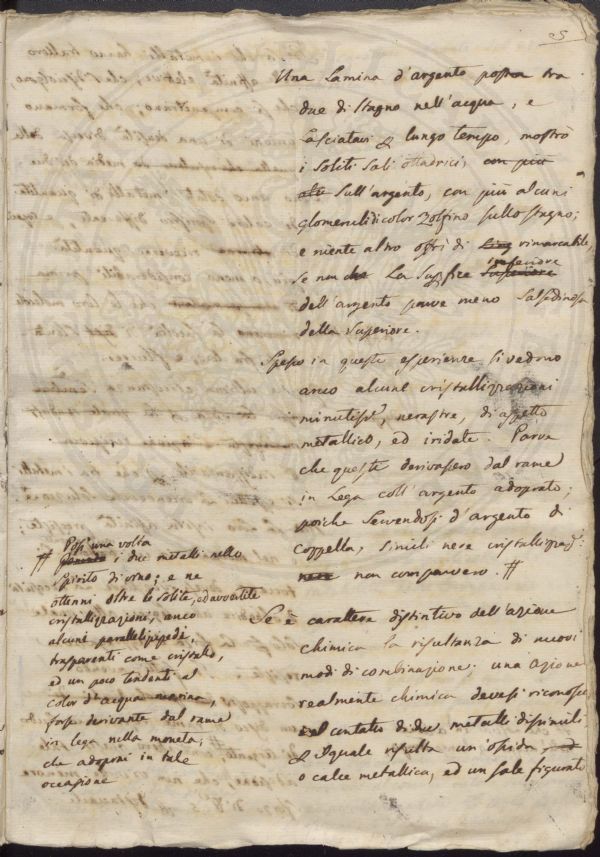 5
Una Lamina d'argento posta tra
due di stagno nell'acqua, e
Lasciatavi p lungo tempo, mostrò
i soliti sali ottaedrici, con più
altr sull'argento, con più alcuni
glomeruli di color zolfino sullo stagno;
e niente altro offrì di rimarcabile,
se non che La Supfice Superiore inferiore
dell'argento parve meno salsedinosa
della superiore.
Spesso in queste esperienze si vedono
anco alcune cristallizzazioni
minutiss.e, nerastre, di aspetto
metallico, ed iridate. Parva
che queste derivassero dal rame
in Lega coll'argento adoprato;
poiche servendosi d'argento di
Coppella, simili nere cristallizzaz:
nere non comparvero. #
# Posi una volta i due metalli nello
spirito di vino; e ne
ottenni oltre le solite, ed avvertite
cristallizzazioni, anco
alcuni parallelipipedi,
trasparenti come cristallo,
ed un poco tendenti al
color d'acqua marina,
forse derivante dal rame
in lega nella moneta,
che adoprai in tale
occasione
Se è carattere distintivo dell'azione
chimica la risultanza di nuovi
modi di combinazione; una azione
realmente chimica devesi riconoscere
nel contatto di due metalli dissimili
p il quale risulta un'ossido, ed
o calce metallica, ed un sale figurato